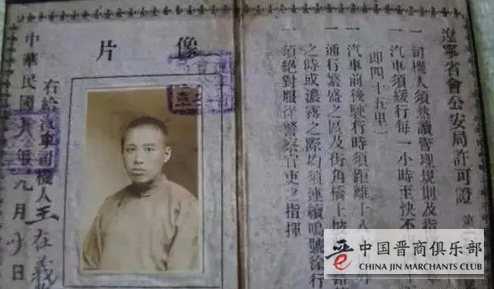 遼寧省會公安局許可證 第
一 司機人須熟讀管理規則及指
一 汽車須緩行每一小時至快不
(即四十五里)
一 汽車前後駛行時須距離十
一 通行繁盛之區及街角橋上坡
之時或濃霧之際均須連續鳴號徐行
須絕對服從警察官吏之指揮
像片
右給汽車司機人王在義
中華民國 年九月 日
晋 中国晋商俱乐部
CHINA JIN MARCHANTS CLUB